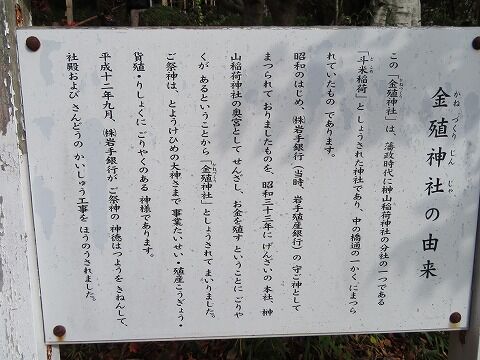 金殖神社の由来
かね づくり じん じゃ
この「金殖神社」は、藩政時代に榊山稲荷神社の分社の一つである
「斗米稲荷」としょうされた神社であり、中の橋通の一かくにまつら
れていたものであります。
昭和のはじめ、㈱岩手銀行(当時、岩手殖産銀行)の守ご神として
まつられておりましたものを、昭和三十三年にげんざいの本社、榊
山稲荷神社の奥宮としてせんざし、お金を殖すということにごりや
くがあるということから「金殖神社」としょうされてまいりました。
ご祭神は、とようけひめの大神さまで事業たいせい・殖産こうぎょう・
貨殖・りしょくにごりやくのある神様であります。
平成十二年九月、㈱岩手銀行がご祭神の神徳はつようをきねんして、
社殿およびさんどうのかいしゅう工事をほうのうされました。